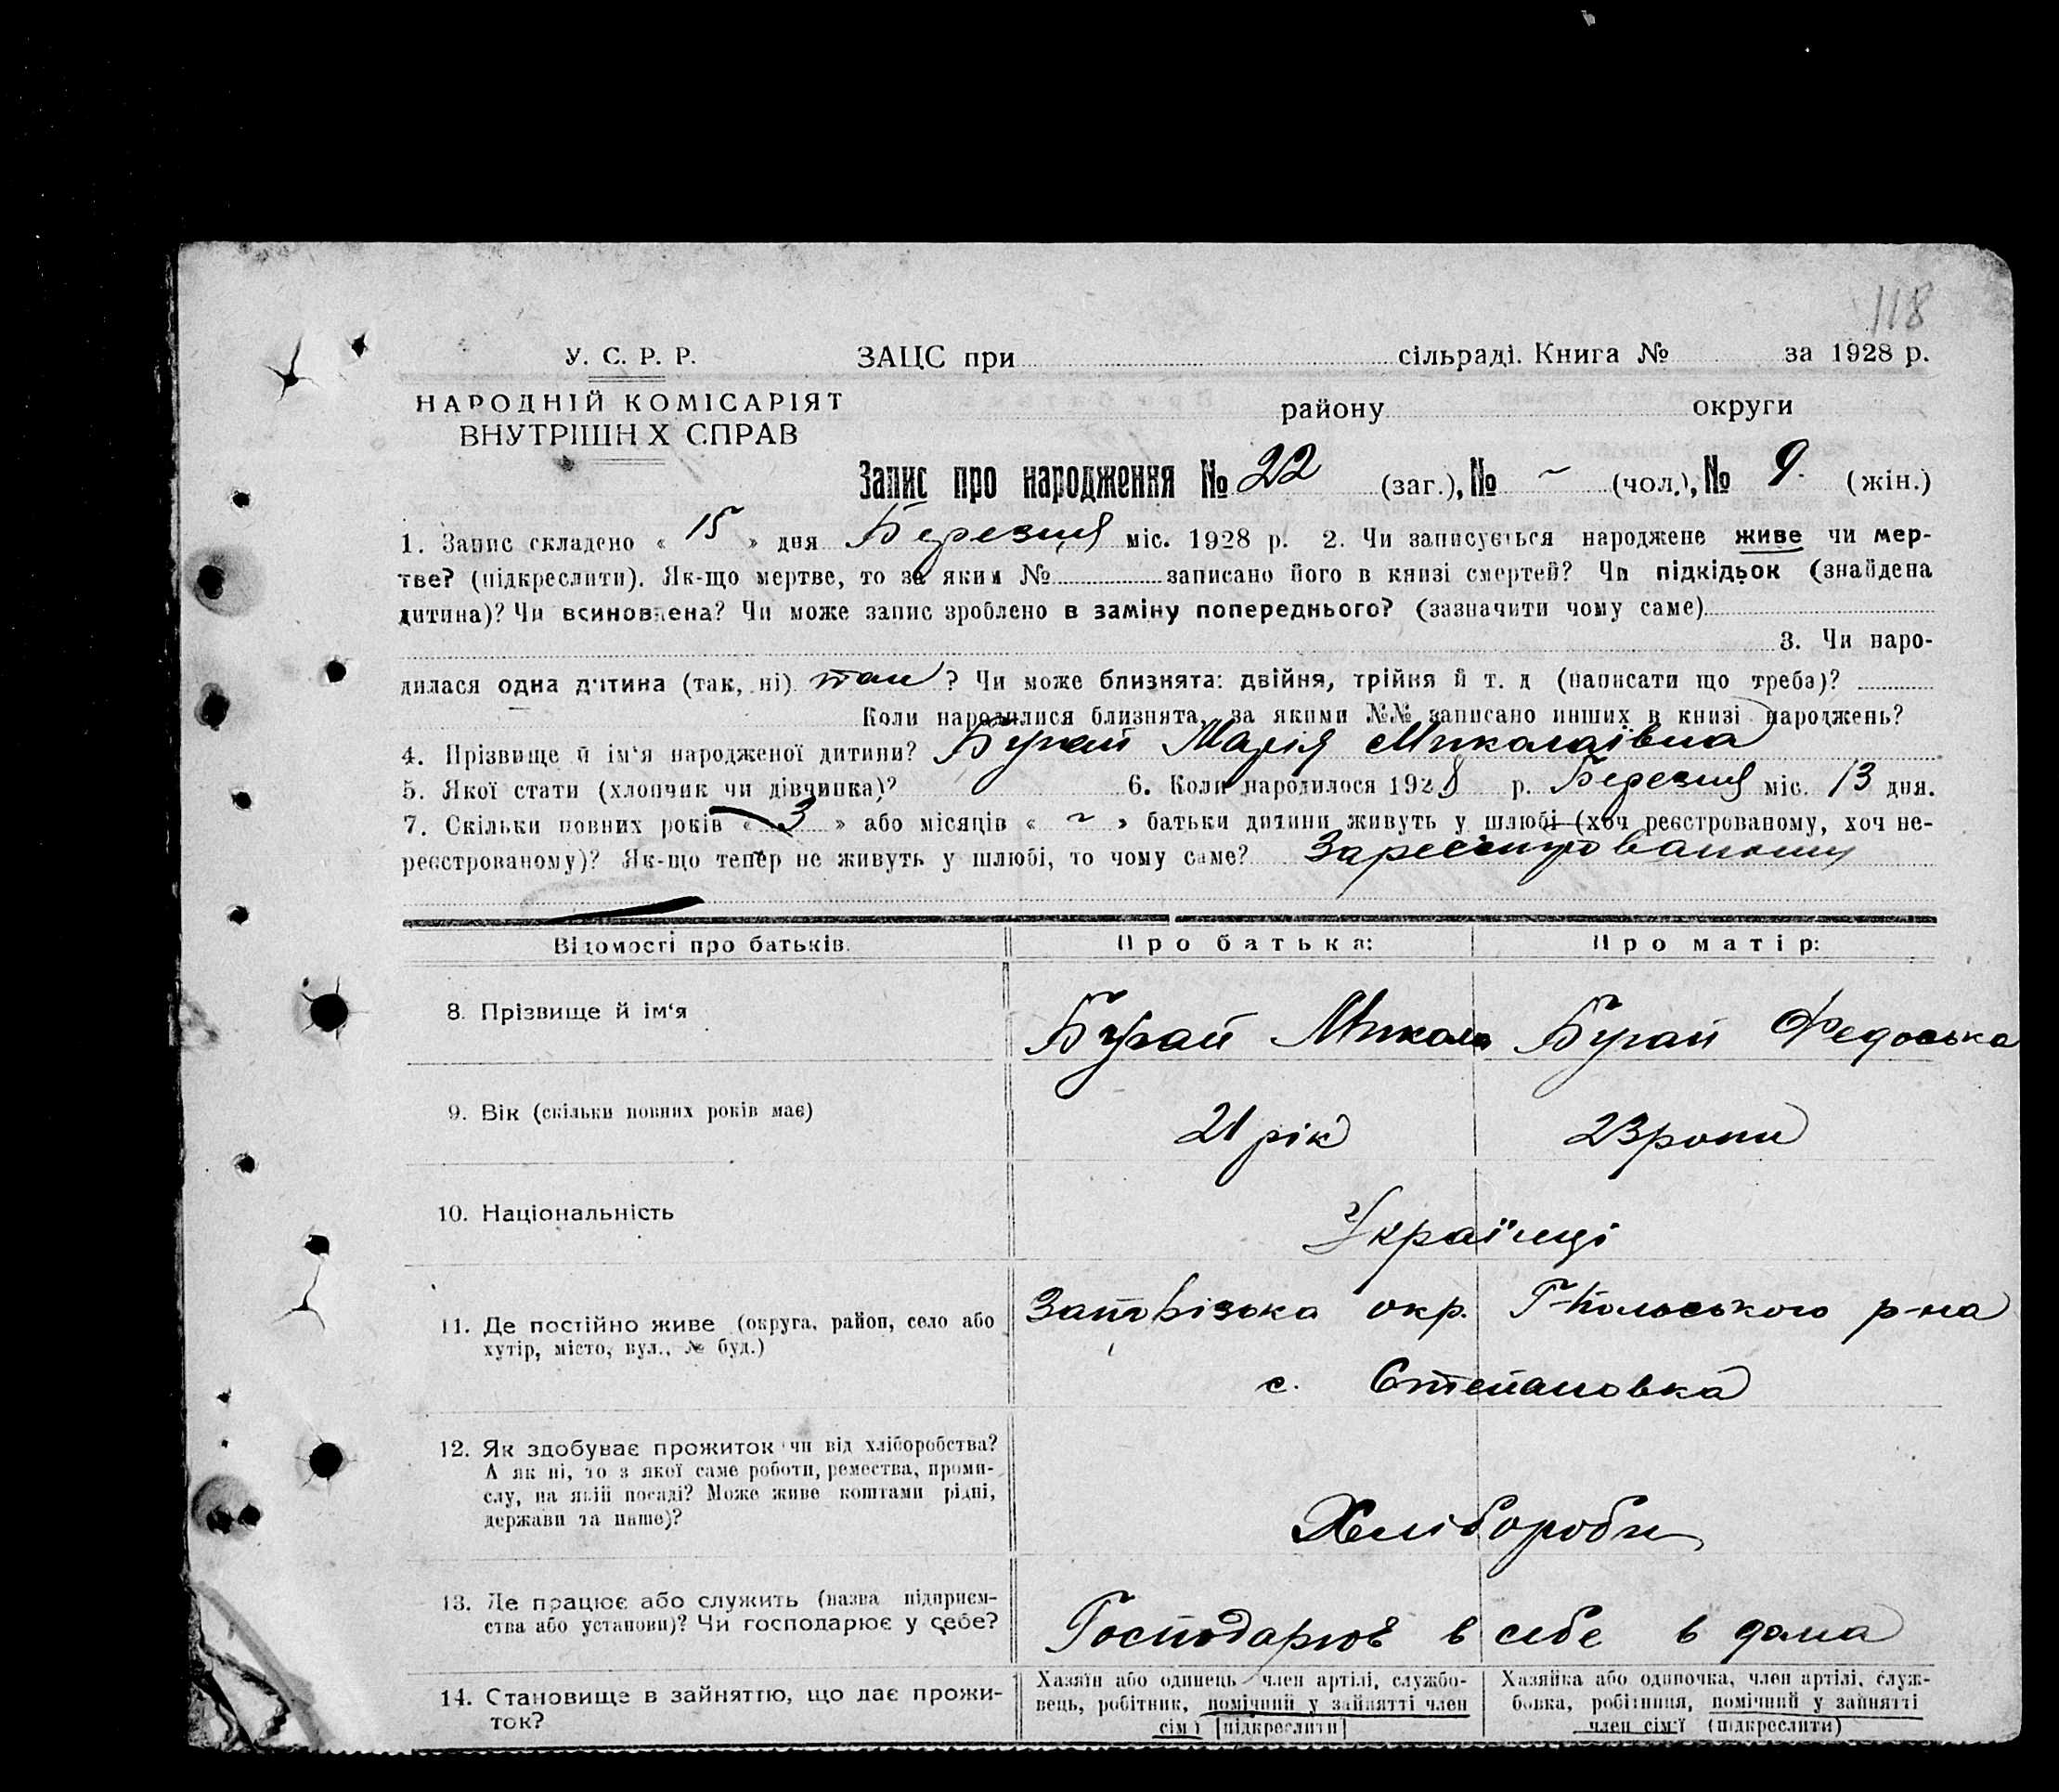 118
У. С. Р. Р. ЗАЦС при сільраді. Книга № за 1928 р.
НАРОДНІЙ КОМІСАРІЯТ району округи
ВНУТРІШН Х СПРАВ
Запис про народження № 22 (заг.), № ~ (чол.), № 9. (жін.)
1. Запис складено « 15 » дня Березня міс. 1928 р. 2. Чи записується народжене живе чи мер-
тве? (підкреслити). Як-що мертве, то за яким № записано його в книзі смертей? Чи підкідьок (знайдена
дитина)? Чи всиновлена? Чи може запис зроблено в заміну попереднього? (зазначити чому саме)
3. Чи наро-
дилася одна дитина (так, ні) так ? Чи може близнята: двійня, трійня й т. д (написати що треба)?
Коли народилися близнята, за якими №№ записано инших в книзі народжень?
4. Прізвище й ім'я народженої дитини? Бугай Марія Миколаівна
5. Якої стати (хлопчик чи дівчинка)? 6. Коли народилося 1928 р. Березня міс. 13 дня.
7. Скільки повних років « 3 » або місяців « ~ » батьки дитини живуть у шлюбі (хоч реєстрованому, хоч не-
реєстрованому)? Як-що тепер не живуть у шлюбі, то чому саме? Зареєстрованому
Відомості про батьків. Про батька: Про матір:
8. Прізвище й ім'я Бугай Микола Бугай Федоська
9. Вік (скільки повних років має) 21 рік 23 роки
10. Національність Українці
11. Де постійно живе (округа, район, село або Запорізька окр. Г-Польського р-на
хутір, місто, вул., № буд.) с. Степановка
12. Як здобуває прожиток чи від хліборобства?
А як ні, то з якої саме роботи, ремества, проми-
слу, на якій посаді? Може живе коштами рідні,
держави та инше)? Хлібороби
13. Де працює або служить (назва підприєм-
ства або установи)? Чи господарює у себе? Господарює в себе в дома
14. Становище в зайняттю, що дає прожи-
ток?
Хазяїн або одинець член артілі, службо-
вець, робітник, помічний у зайнятті член
сім'ї [підкреслити]
Хазяйка або одиночка, член артілі, служ-
бовка, робітниця, помічний у зайнятті
член сім'ї (підкреслити)